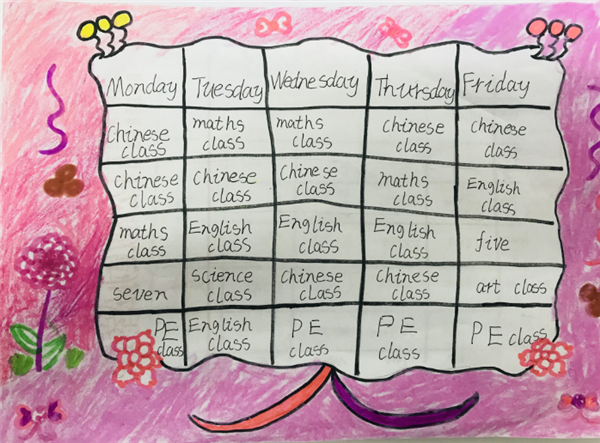 Monday Tuesday Wednesday Thursday Friday
Chinese class maths class maths class Chinese class Chinese class
Chinese class Chinese class Chinese class maths class English class
maths class English class English class English class five
seven science class Chinese class Chinese class art class
PE class English class PE class PE class PE class